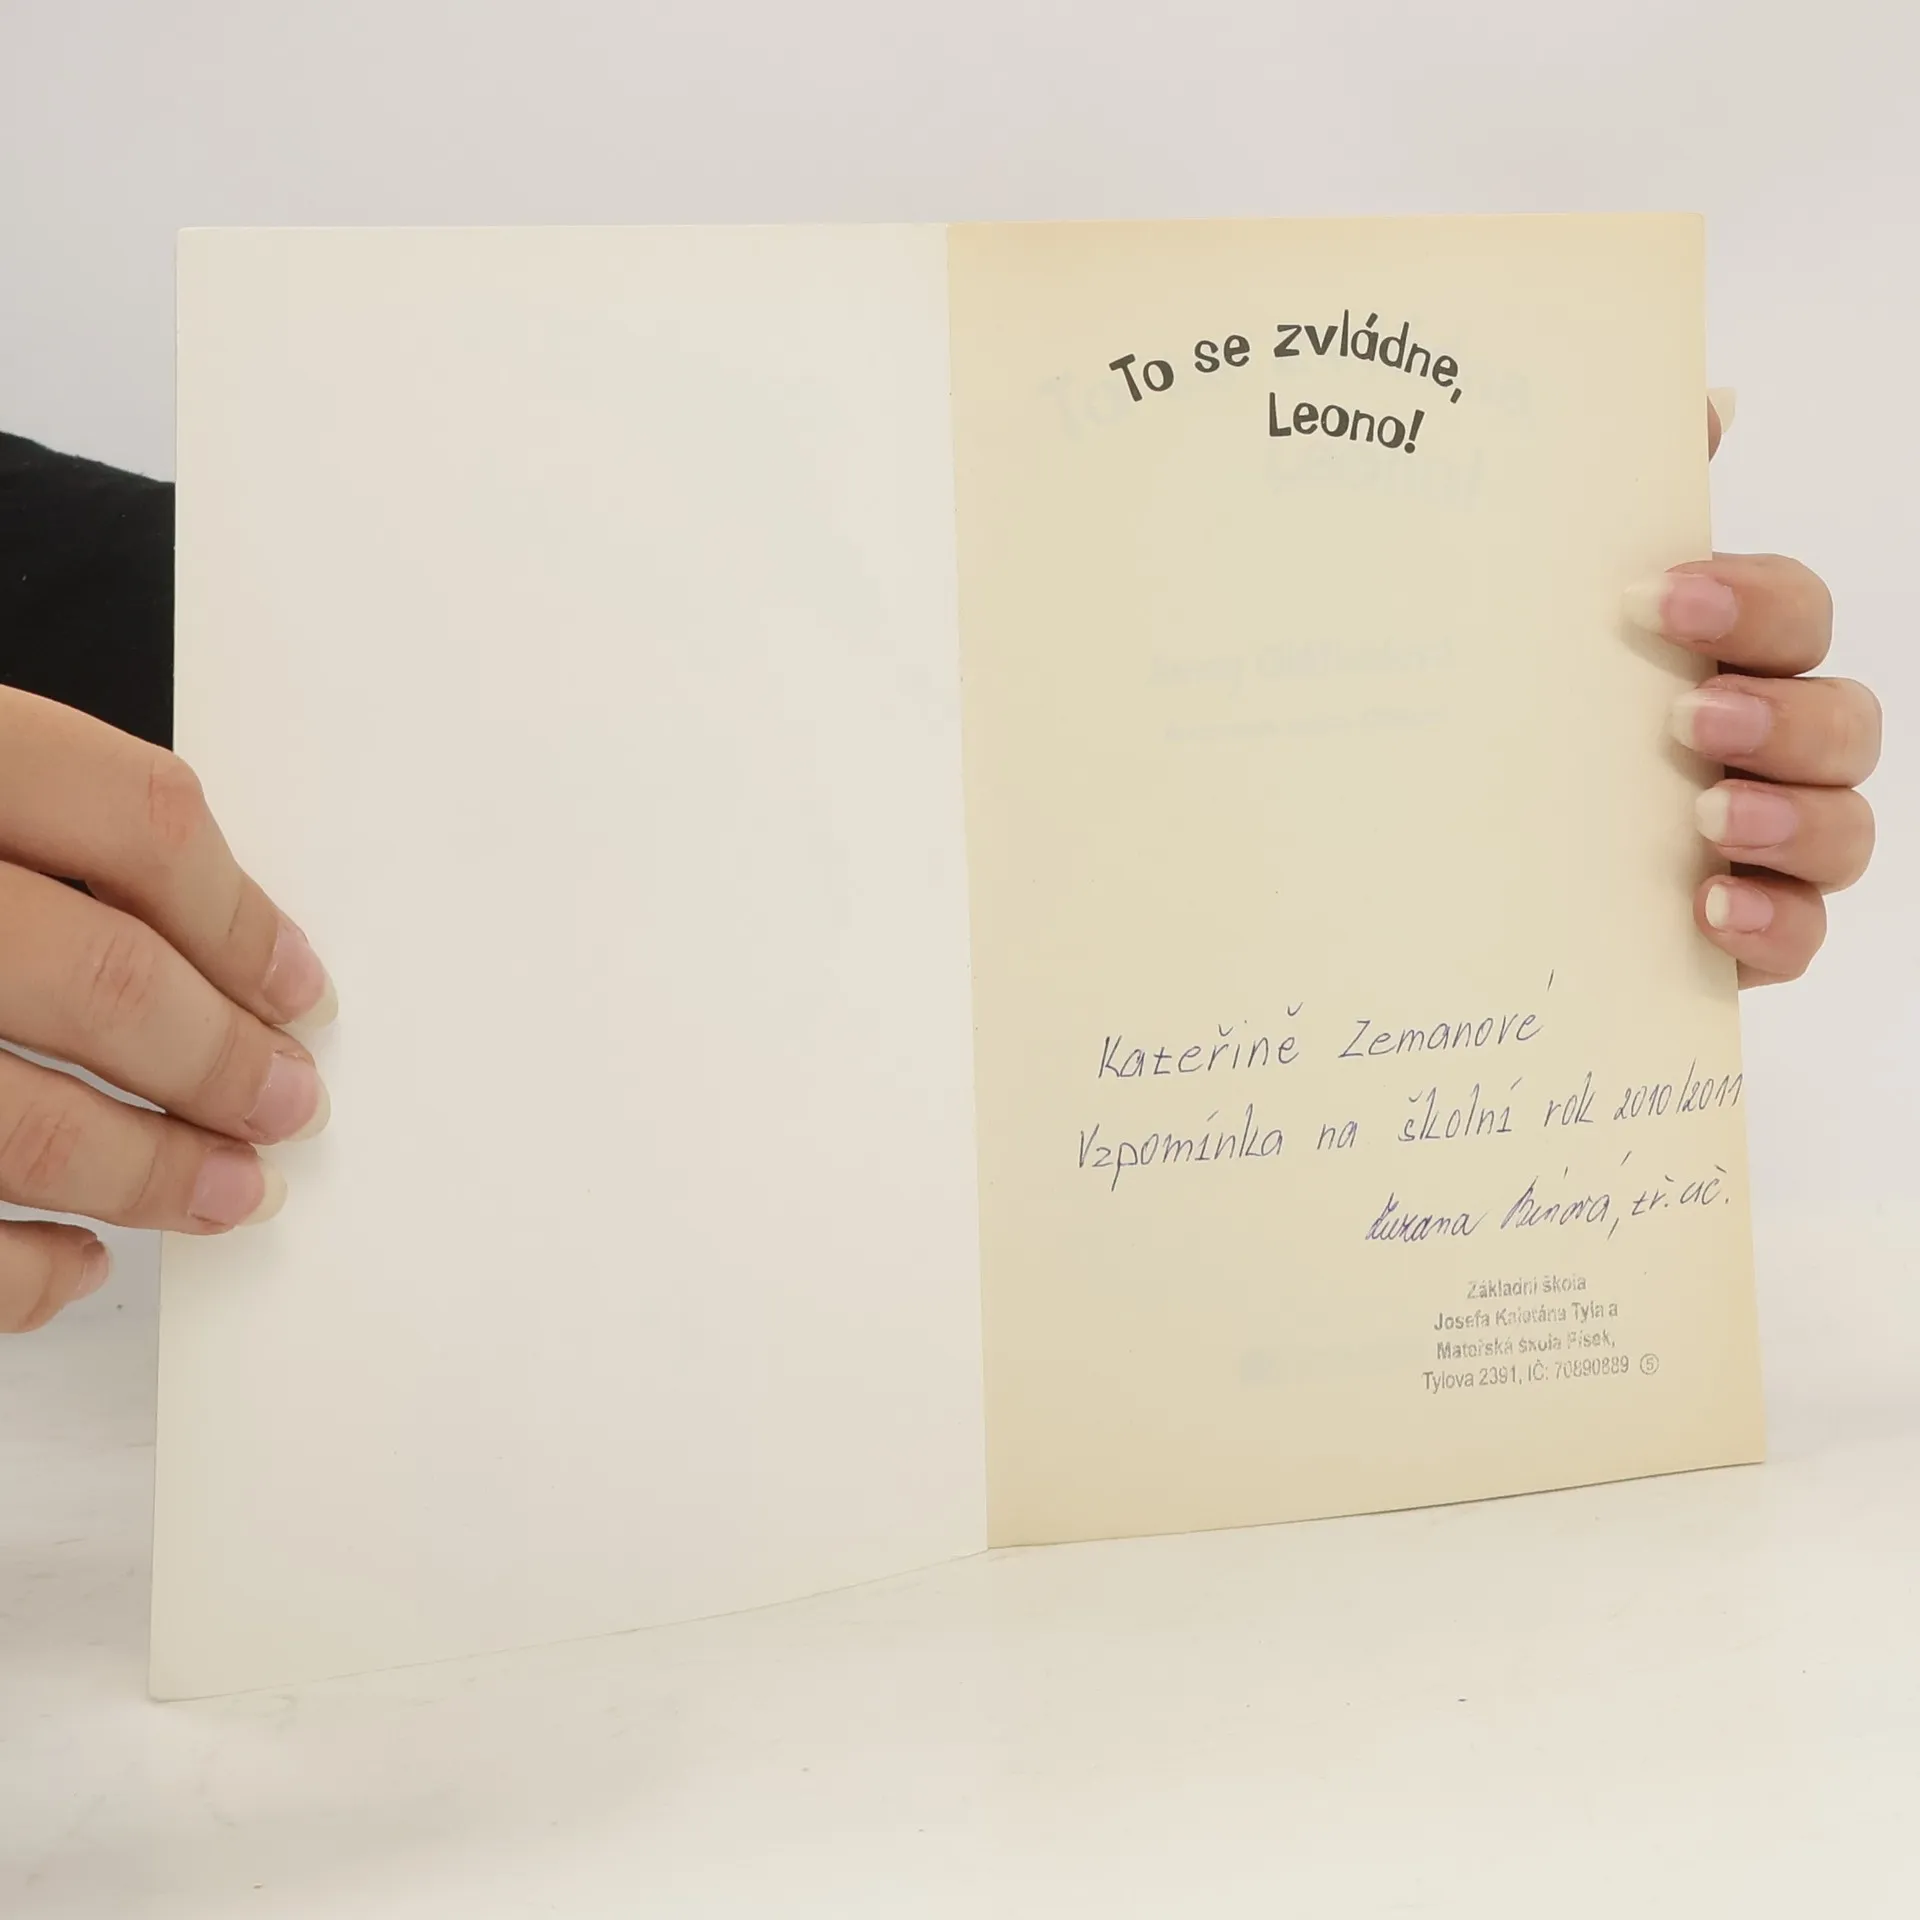 To se zvládne,
Leono!
Kateřině Zemanové
Vzpomínka na školní rok 2010/2011
Zuzana Bínová, tř. uč.
Základní škola
Josefa Kajetána Tyla a
Mateřská škola Písek,
Tylova 2391, IČ: 70890889 ⑤